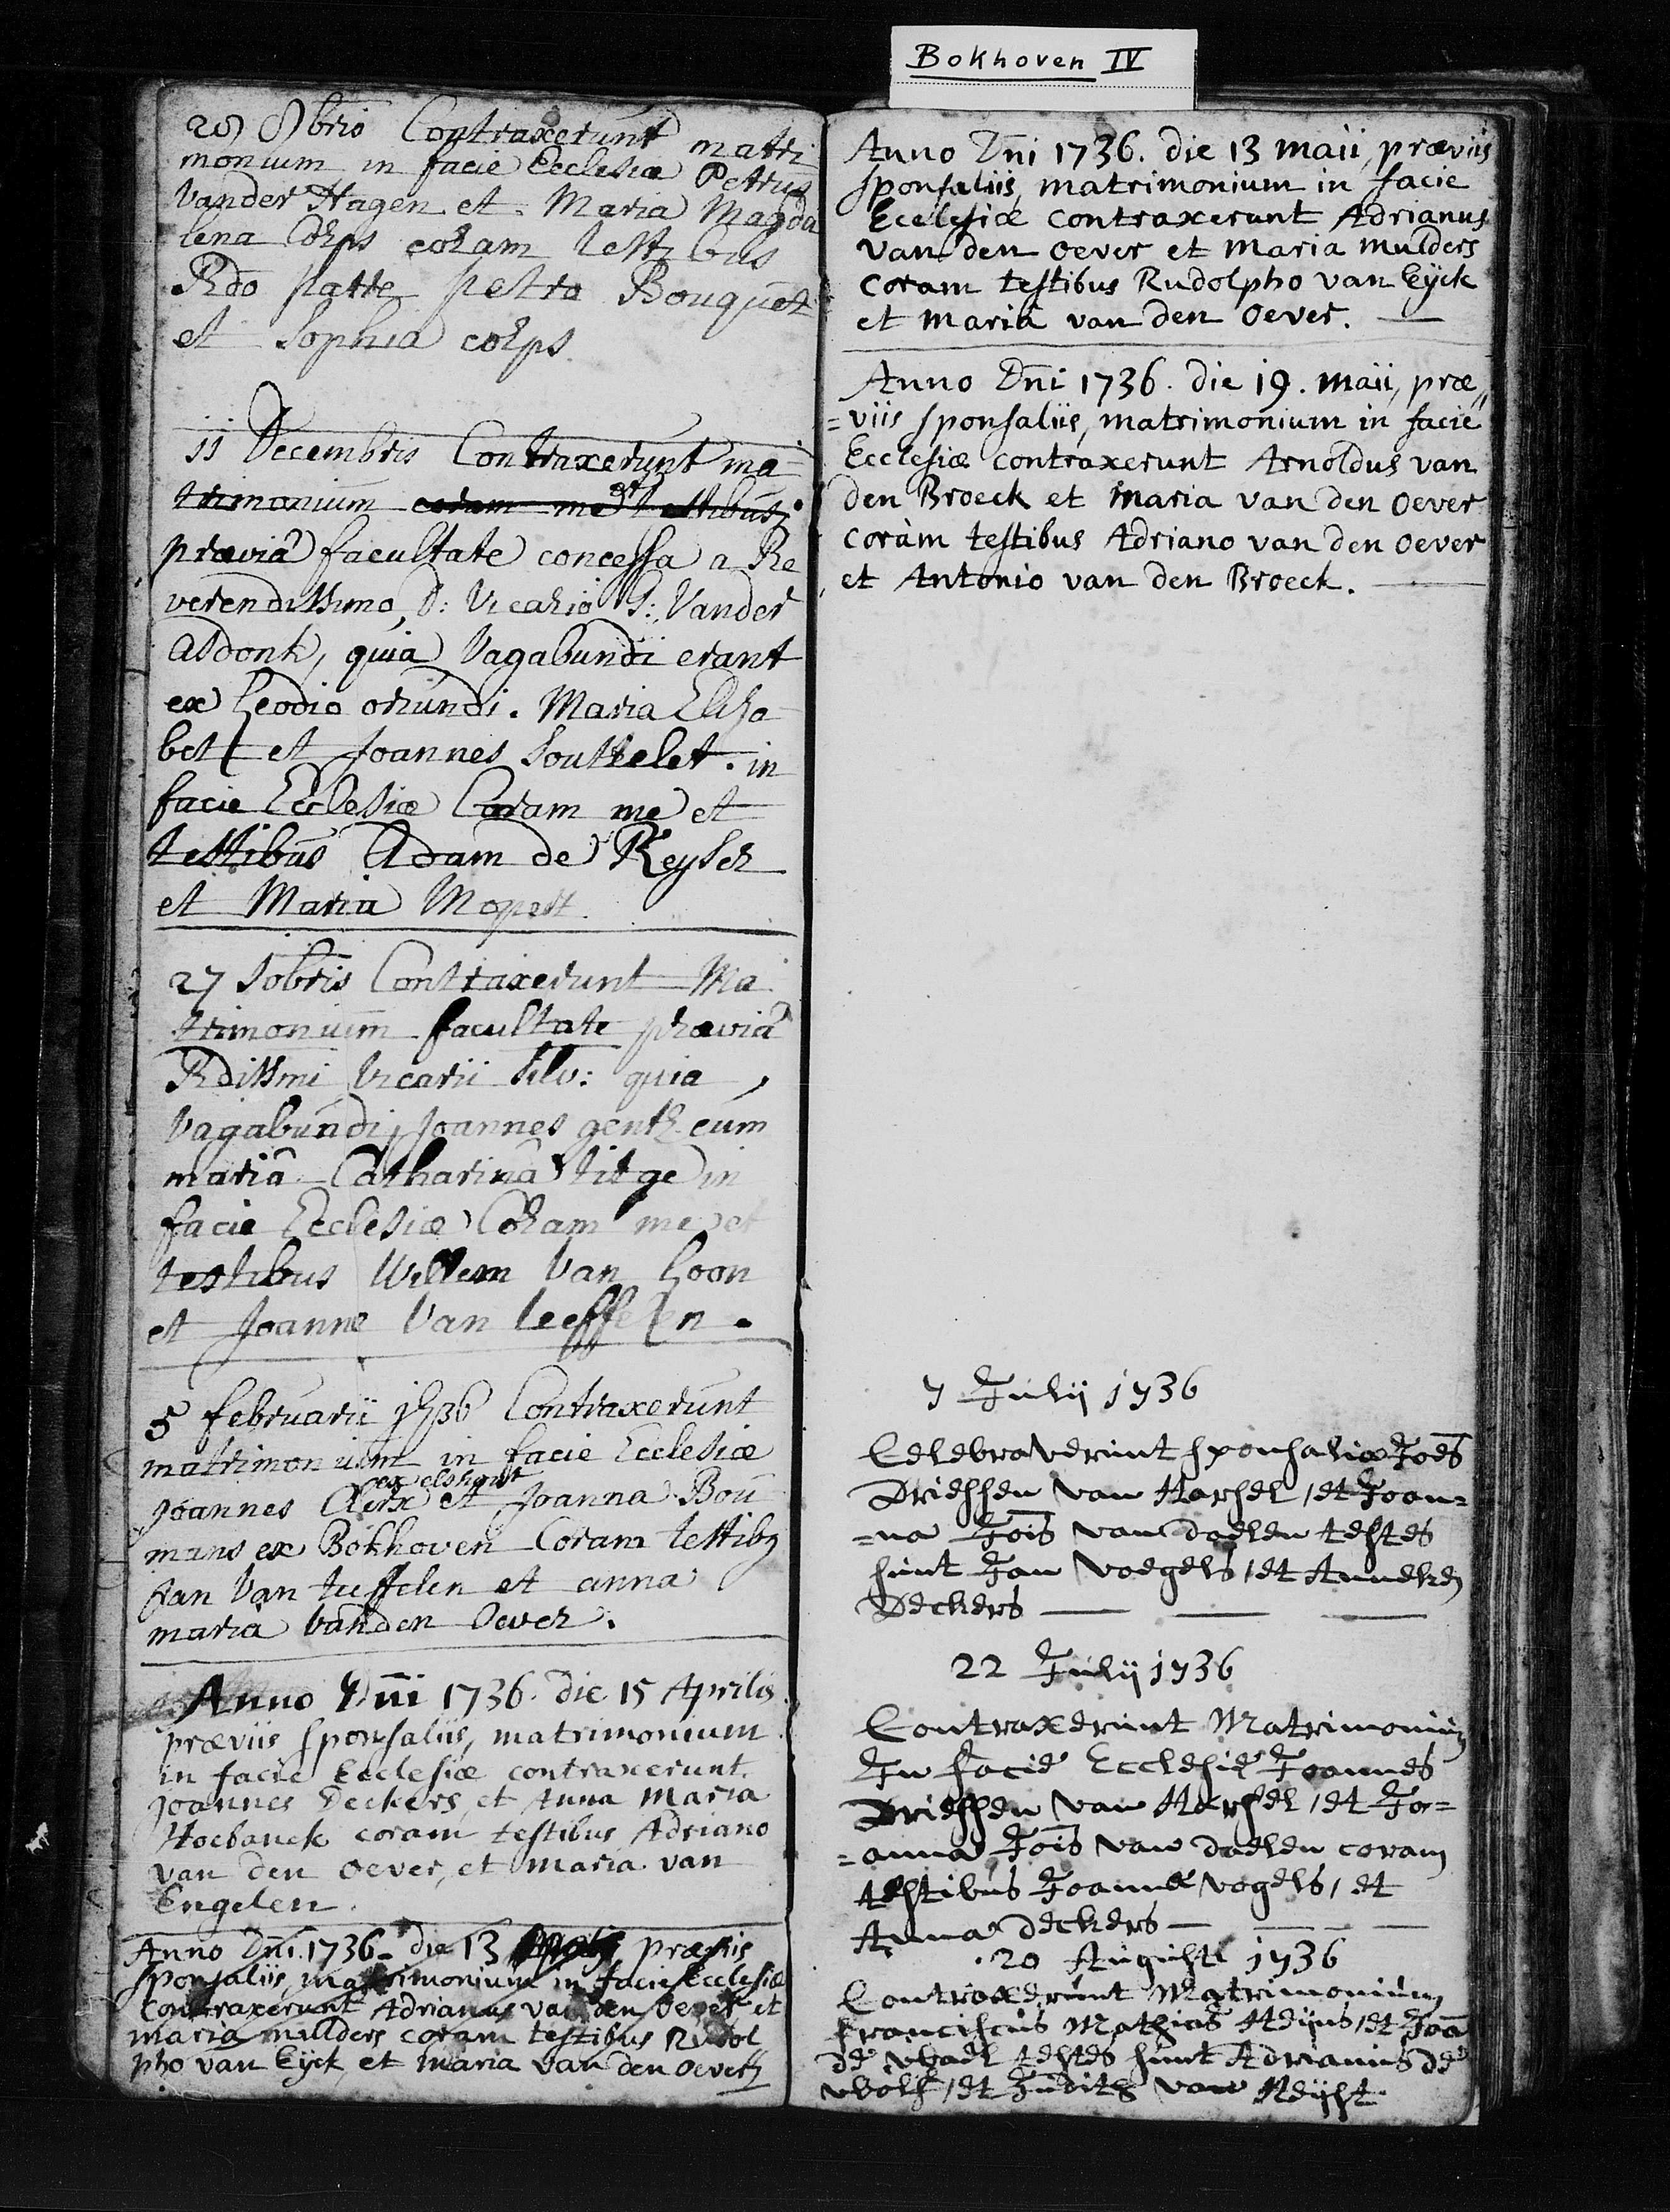 Bokhoven IV
28 8bris Contraxerunt matri
monium in facie Ecclesiæ Petrus
Vander Hagen et Maria Magda
lena Corps coram testibus
Rdo patre petro Bouquet
et Sophia corps
11 Decembris Contraxerunt ma
trimonium coram me et testibus
præviâ facultate concessa a Re
verendissimo D: Vicario S: Vander
Asdonk, quia Vagabundi erant
ex Leodio oriundi. Maria Eliza
bet et Joannes Souttelet. in
facie Ecclesiæ Coram me et
testibus Adam de Keyser
et Maria Mopert.
27 Xbris Contraxerunt Ma
trimonium facultate præviâ
Rdissmi Vicarii Silv: quia,
Vagabundi, Joannes gentz cum
mariâ Catharinâ titge in
facie Ecclesiæ Coram me et
testibus Willem Van Loon
et Joanne Van leeffelen.
5 februarii 1736 Contraxerunt
matrimonium in facie Ecclesiæ
ex elshout
Joannes Clerx et Joanna Bou
mans ex Bokhoven Coram testibus
Jan Van tuffelen et anna
maria vanden Oever.
Anno Dni 1736. die 15 Aprilis
præviis sponsaliis, matrimonium
in facie Ecclesiæ contraxerunt
Joannes Deckers et Anna Maria
Hoebanck coram testibus Adriano
van den Oever, et maria van
Engelen.
Anno Dni. 1736. die 13 præviis
sponsaliis, matrimonium in facie Ecclesiæ
contraxerunt Adrianus van den Oever et
maria mulders coram testibus Rudol
pho van Eyck et maria van den Oever
Anno Dni 1736. die 13 maii, præviis
sponsaliis, matrimonium in facie
Ecclesiæ contraxerunt Adrianus
van den Oever et Maria mulders
coram testibus Rudolpho van Eyck
et maria van den Oever.
Anno Dni 1736. die 19. maii, præ„
=viis sponsaliis, matrimonium in facie
Ecclesiæ contraxerunt Arnoldus van
den Broeck et maria van den Oever
coràm testibus Adriano van den Oever
et Antonio van den Broeck.
7 Julij 1736
Celebraverunt sponsalia Joes
Driessen van Harsel, et Joan=
=na Jois van daelen testes
sunt Jan Voegels, et Anneken
Deckers
22 Julij 1736
Contraxerunt Matrimonium
In facie Ecclesie Joannes
Driessen van Harsel, et Jo=
=anna Jois van daelen coram
testibus Joanne vogels, et
Anna deckers
20 Augusti 1736
Contraxerunt Matrimonium
Franciscus Mathias Heijns, et Joã
de Waal testes sunt Adrianus de
Wolf, et Judith van Heijst